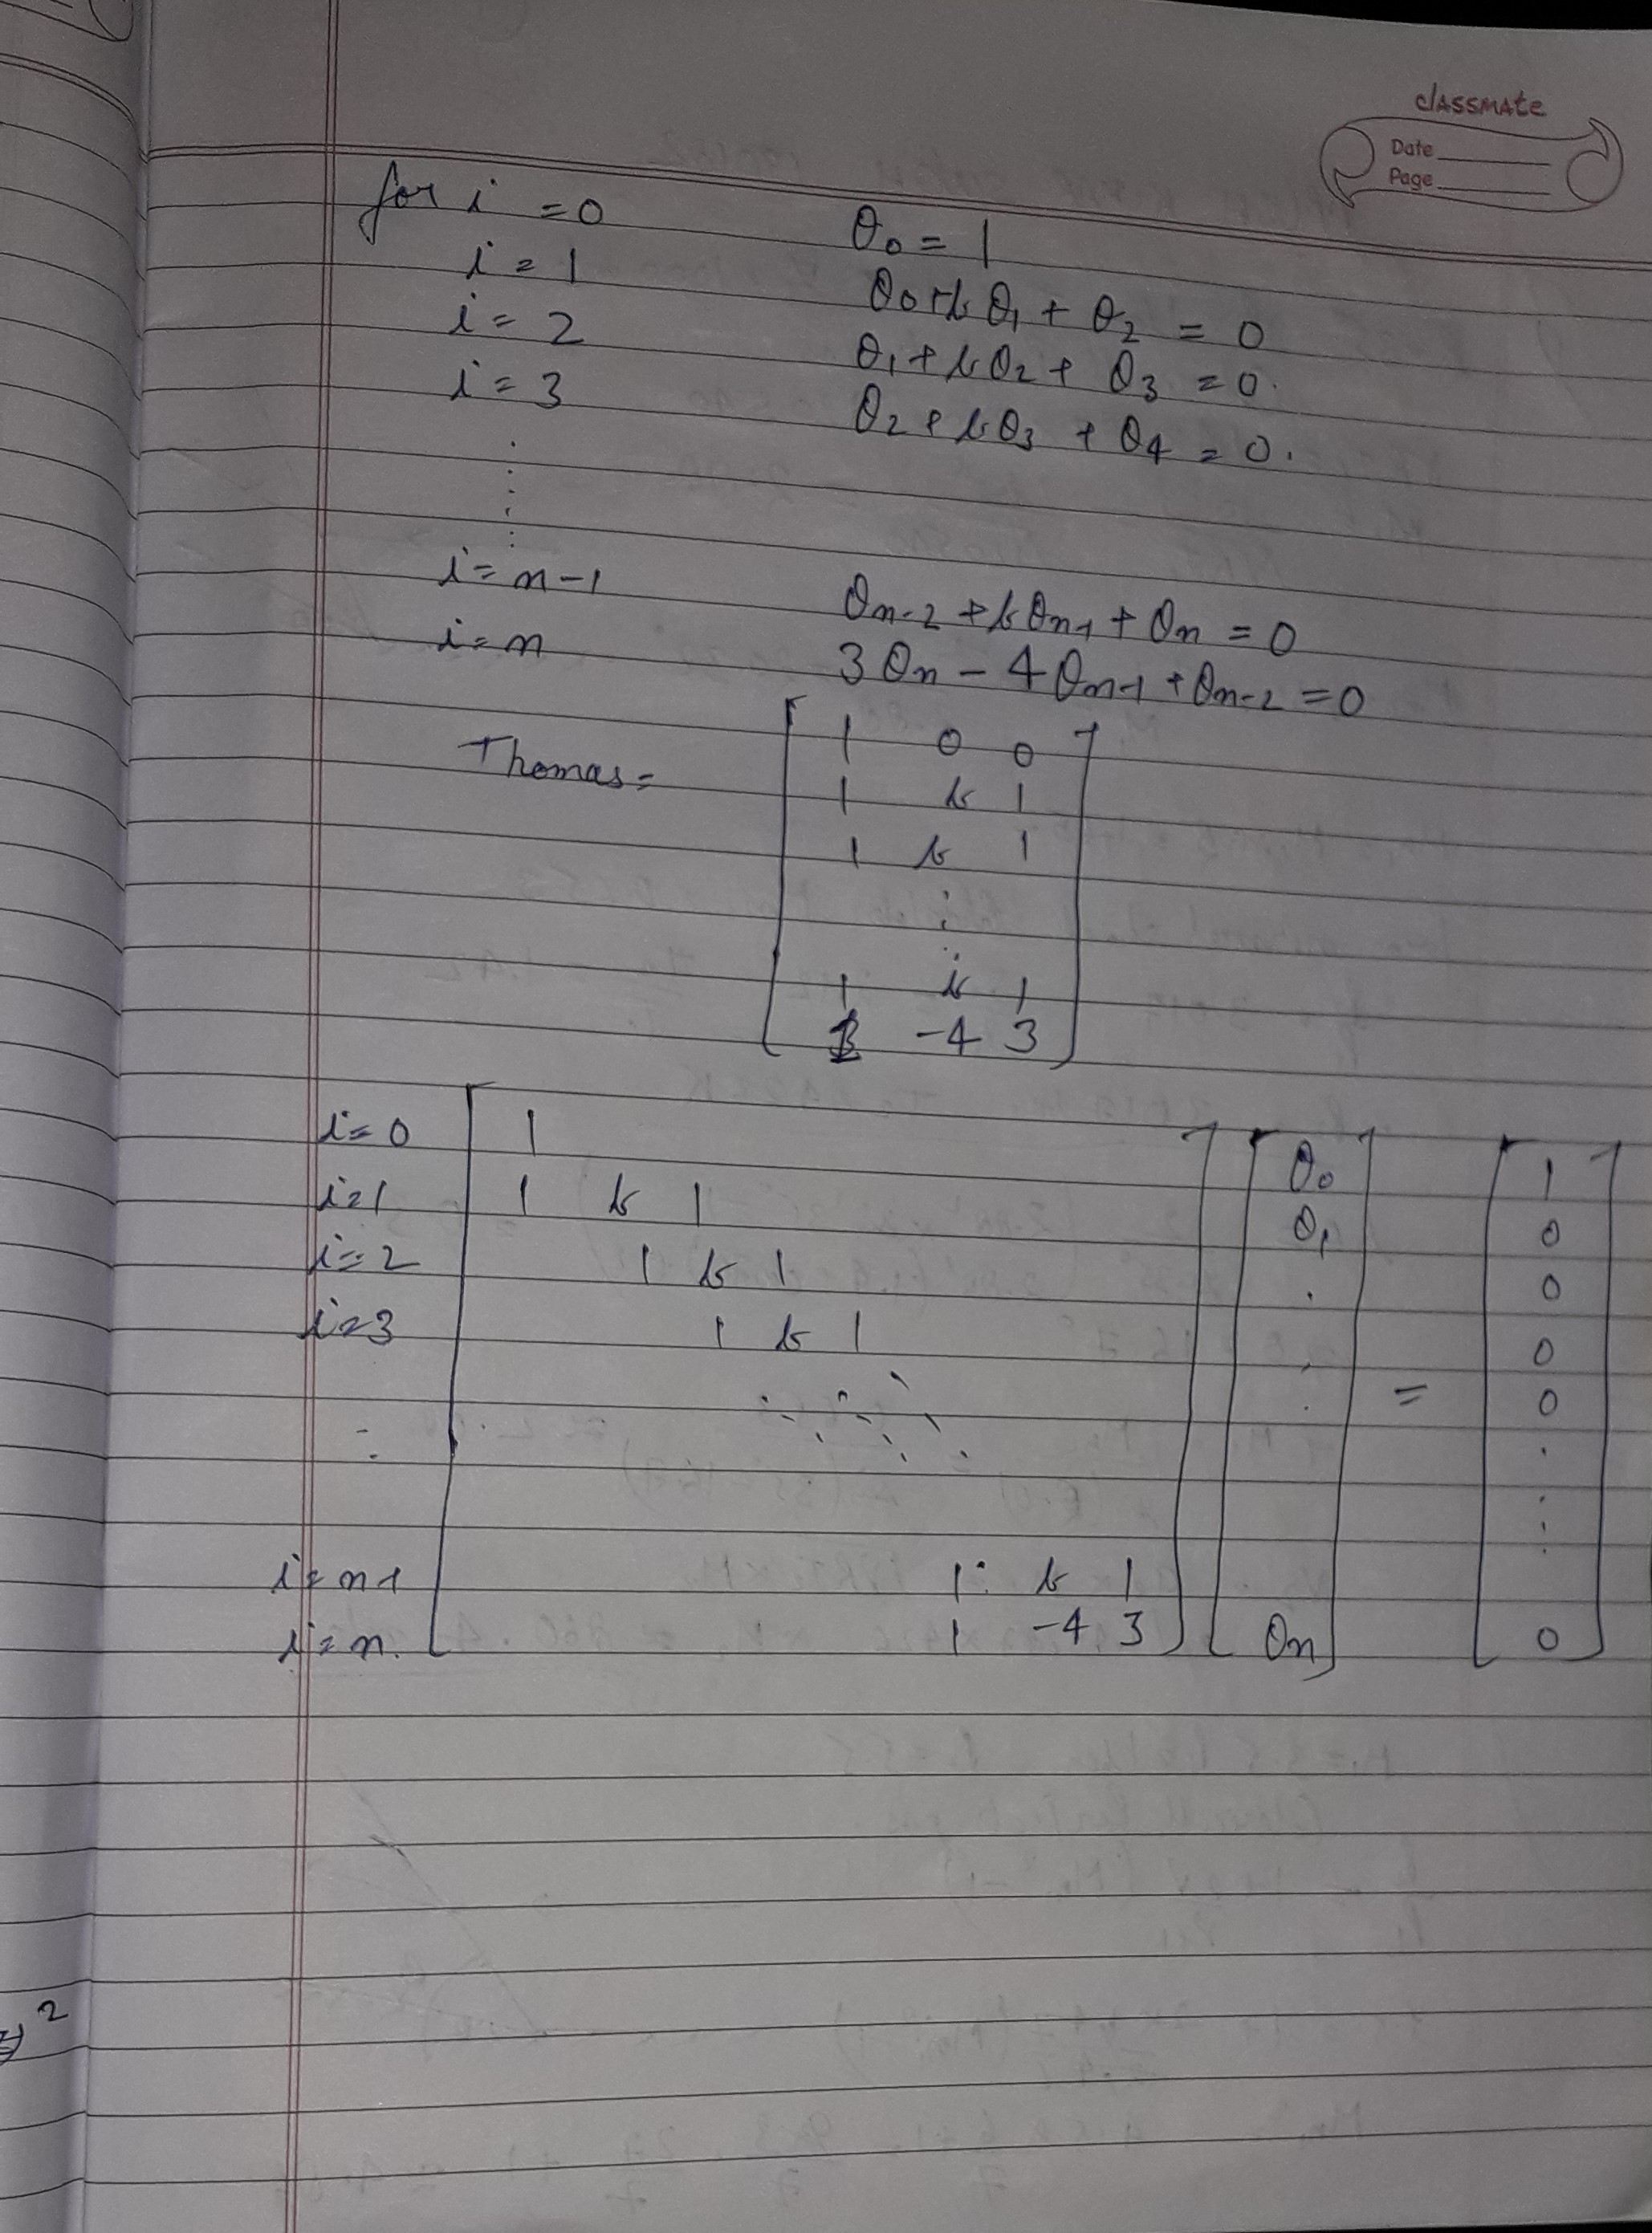 classmate
Date
Page
for i = 0 θ₀ = 1
i = 1 θ₀ + b θ₁ + θ₂ = 0
i = 2 θ₁ + b θ₂ + θ₃ = 0.
i = 3 θ₂ + b θ₃ + θ₄ = 0.
i = n-1 θn-2 + b θn-1 + θn = 0
i = n 3 θn - 4 θn-1 + θn-2 = 0
Thomas = [ 1 0 0
1 b 1
1 b 1
1 b 1
1 -4 3 ]
i = 0 1 θ₀ 1
i = 1 1 b 1 θ₁ 0
i = 2 1 b 1 0
i = 3 1 b 1 0
= 0
i = n-1 1 b 1
i = n. 1 -4 3 θn 0
2